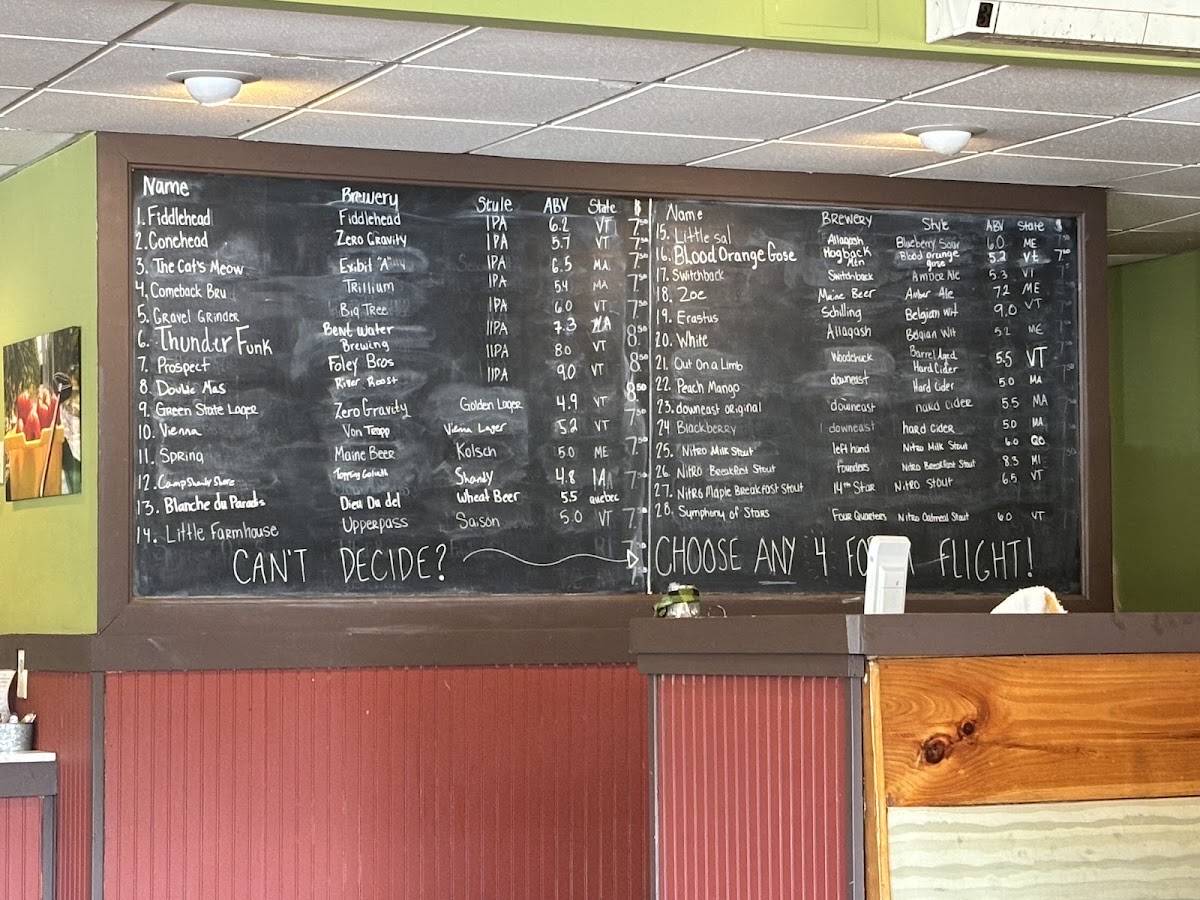 Name Brewery Style ABV State $
1. Fiddlehead Fiddlehead IPA 6.2 VT 7.50
2. Conehead Zero Gravity IPA 5.7 VT 7.50
3. The Cat's Meow Exhibit "A" IPA 6.5 MA 7.50
4. Comeback Bru Trillium IPA 54 MA 7.50
5. Gravel Grinder Big Tree IPA 6.0 VT 7.50
6. Thunder Funk Bent Water Brewing IIPA 7.3 MA 8.50
7. Prospect Foley Bros IIPA 80 VT 8.50
8. Double Mas River Roost IIIPA 9.0 VT 8.50
9. Green State Lager Zero Gravity Golden Lager 4.9 VT 7.50
10. Vienna Von Trapp Vienna Lager 5.2 VT
11. Spring Maine Beer Kolsch 5.0 ME 7.50
12. Camp Shandy Shore Topping Goliath Shandy 4.8 IA 7.50
13. Blanche du Paradis Dieu Du del Wheat Beer 5.5 quebec
14. Little Farmhouse Upperpass Saison 5.0 VT 7.50
CAN'T DECIDE?
Name Brewery Style ABV State $
15. Little sal Allagash Blueberry Sour 6.0 ME
16. Blood Orange Gose Hogback Mtn Blood orange gose 5.2 Vt 7.50
17. Switchback Switchback Amber Ale 5.3 VT
18. Zoe Maine Beer Amber Ale 7.2 ME
19. Erastus Schilling Belgian wit 9.0 VT
20. White Allagash Belgian Wit 5.2 ME
21. Out On a Limb Woodchuck Barrel Aged Hard Cider 5.5 VT
22. Peach Mango downeast Hard Cider 5.0 MA
23. downeast original downeast hard Cider 5.5 MA
24 Blackberry downeast hard Cider 5.0 MA
25. Nitro Milk Stout left hand Nitro Milk Stout 6.0 QO
26. Nitro Breakfast Stout founders Nitro Breakfast Stout 8.3 MI
27. Nitro Maple Breakfast Stout 14th Star Nitro Stout 6.5 VT
28. Symphony of Stars Four Quarters Nitro Oatmeal Stout 6.0 VT
CHOOSE ANY 4 FLIGHT!